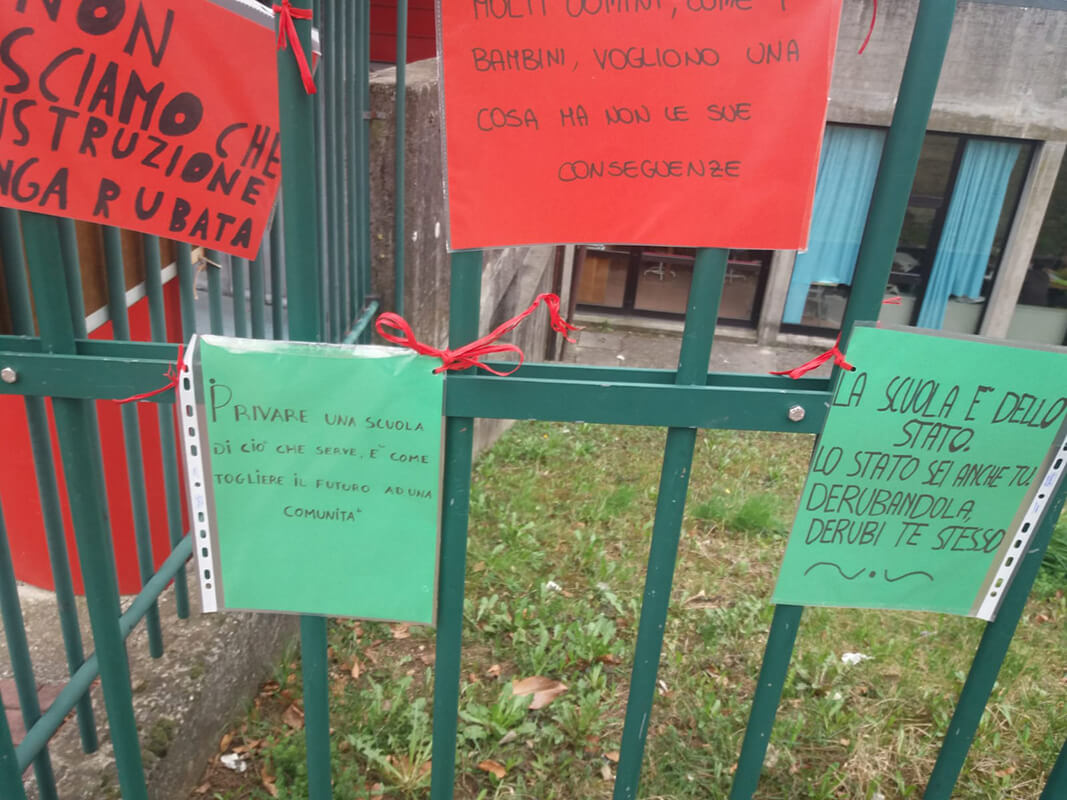 NON
SCIAMO CHE
ISTRUZIONE
NGA RUBATA
MOLTI UOMINI, COME I
BAMBINI, VOGLIONO UNA
COSA MA NON LE SUE
CONSEGUENZE
PRIVARE UNA SCUOLA
DI CIO' CHE SERVE, E' COME
TOGLIERE IL FUTURO AD UNA
COMUNITA'
LA SCUOLA E' DELLO
STATO.
LO STATO SEI ANCHE TU.
DERUBANDOLA,
DERUBI TE STESSO